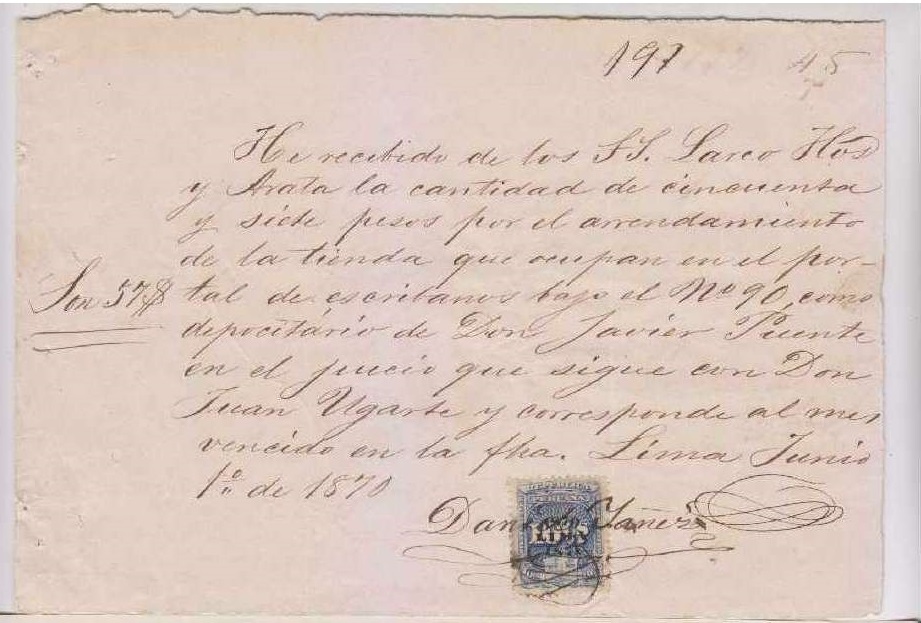 197 45
He recibido de los SS. Larco Hos
y Arata la cantidad de cincuenta
y siete pesos por el arrendamiento
de la tienda que ocupan en el por-
Son 57$ tal de escribanos bajo el No 90, como
depocitário de Don Javier Puente
en el juicio que sigue con Don
Juan Ugarte y corresponde al mes
vencido en la fha. Lima Junio
1o. de 1870
Yañez